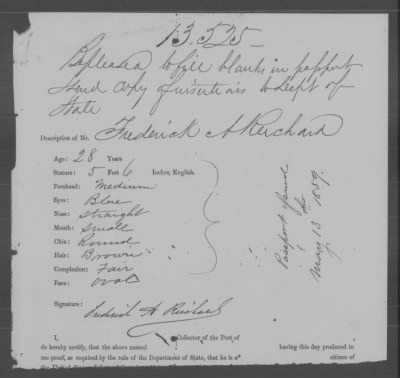 13.525
Be pleased to fill blanks in passport
send copy of insertions to Dept of
State
Description of Mr. Frederick A
Age: 28 Years
Stature: 5 Feet 6 Inches, English.
Forehead: Medium
Eyes: Blue
Nose: straight
Mouth: small
Chin: Round
Hair: Brown
Complexion: Fair
Face: oval
Signature: Frederick A
Passport issued
May 13 1859.
I, Collector of the Port of
do hereby certify, that the above named having this day produced to
me proof, as required by the rule of the Department of State, that he is a citizen of